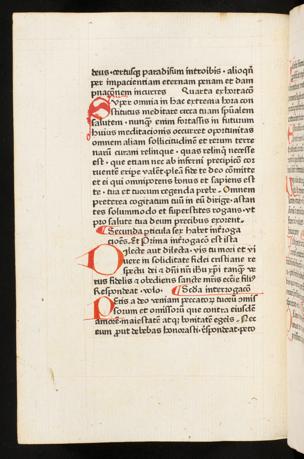 deus · certusq̃ paradisum introibis · alioqñ
per impacientiam eternam penam et dam
pnacõnem incurres Quarta exhortacõ
Super omnia in hac extrema hora con
stitutus meditare circa tuam spũalem
salutem · nunq̃ enim fortassis in futurum
huius meditacionis occurret oportunitas
omnem aliam sollicitudinẽ et rerum terre
narũ curam relinque · quas relinq̃ necesse
est · que etiam nec ab inferni precipicõ
tuentẽ eripe valent plẽã fide te deo cõmitte
et ei qui omnipotens bonus et sapiens est
te · tua et tuorum regenda prebe · Omnem
preterea cogitatum tuũ in eũ dirige · astan
tes sollummodo et superstites rogans · vt
pro salute tua deum precibus exorent ·
Secunda pticula sex habet interroga
ciões · Et Prima interrogacõ est ista
Dilecte aut dilecta · vis tu mori et vi
uere in soliditate fidei cristiane re
spectu dei et dñi nñ ihu xp̃i tanq̃ ve
rus fidelis et obediens sancte mr̃is eccĩe filiꝰ
Respondeat · volo · Scda interrogacõ
Petis a deo veniam peccatoꝝ tuoꝝ omis
sorum et omissorũ que contra eiusdem
amorẽ · maiestatẽ atq̃ bonitatẽ egeris · Nec
eum put debebas honorasti · Respondeat · peto